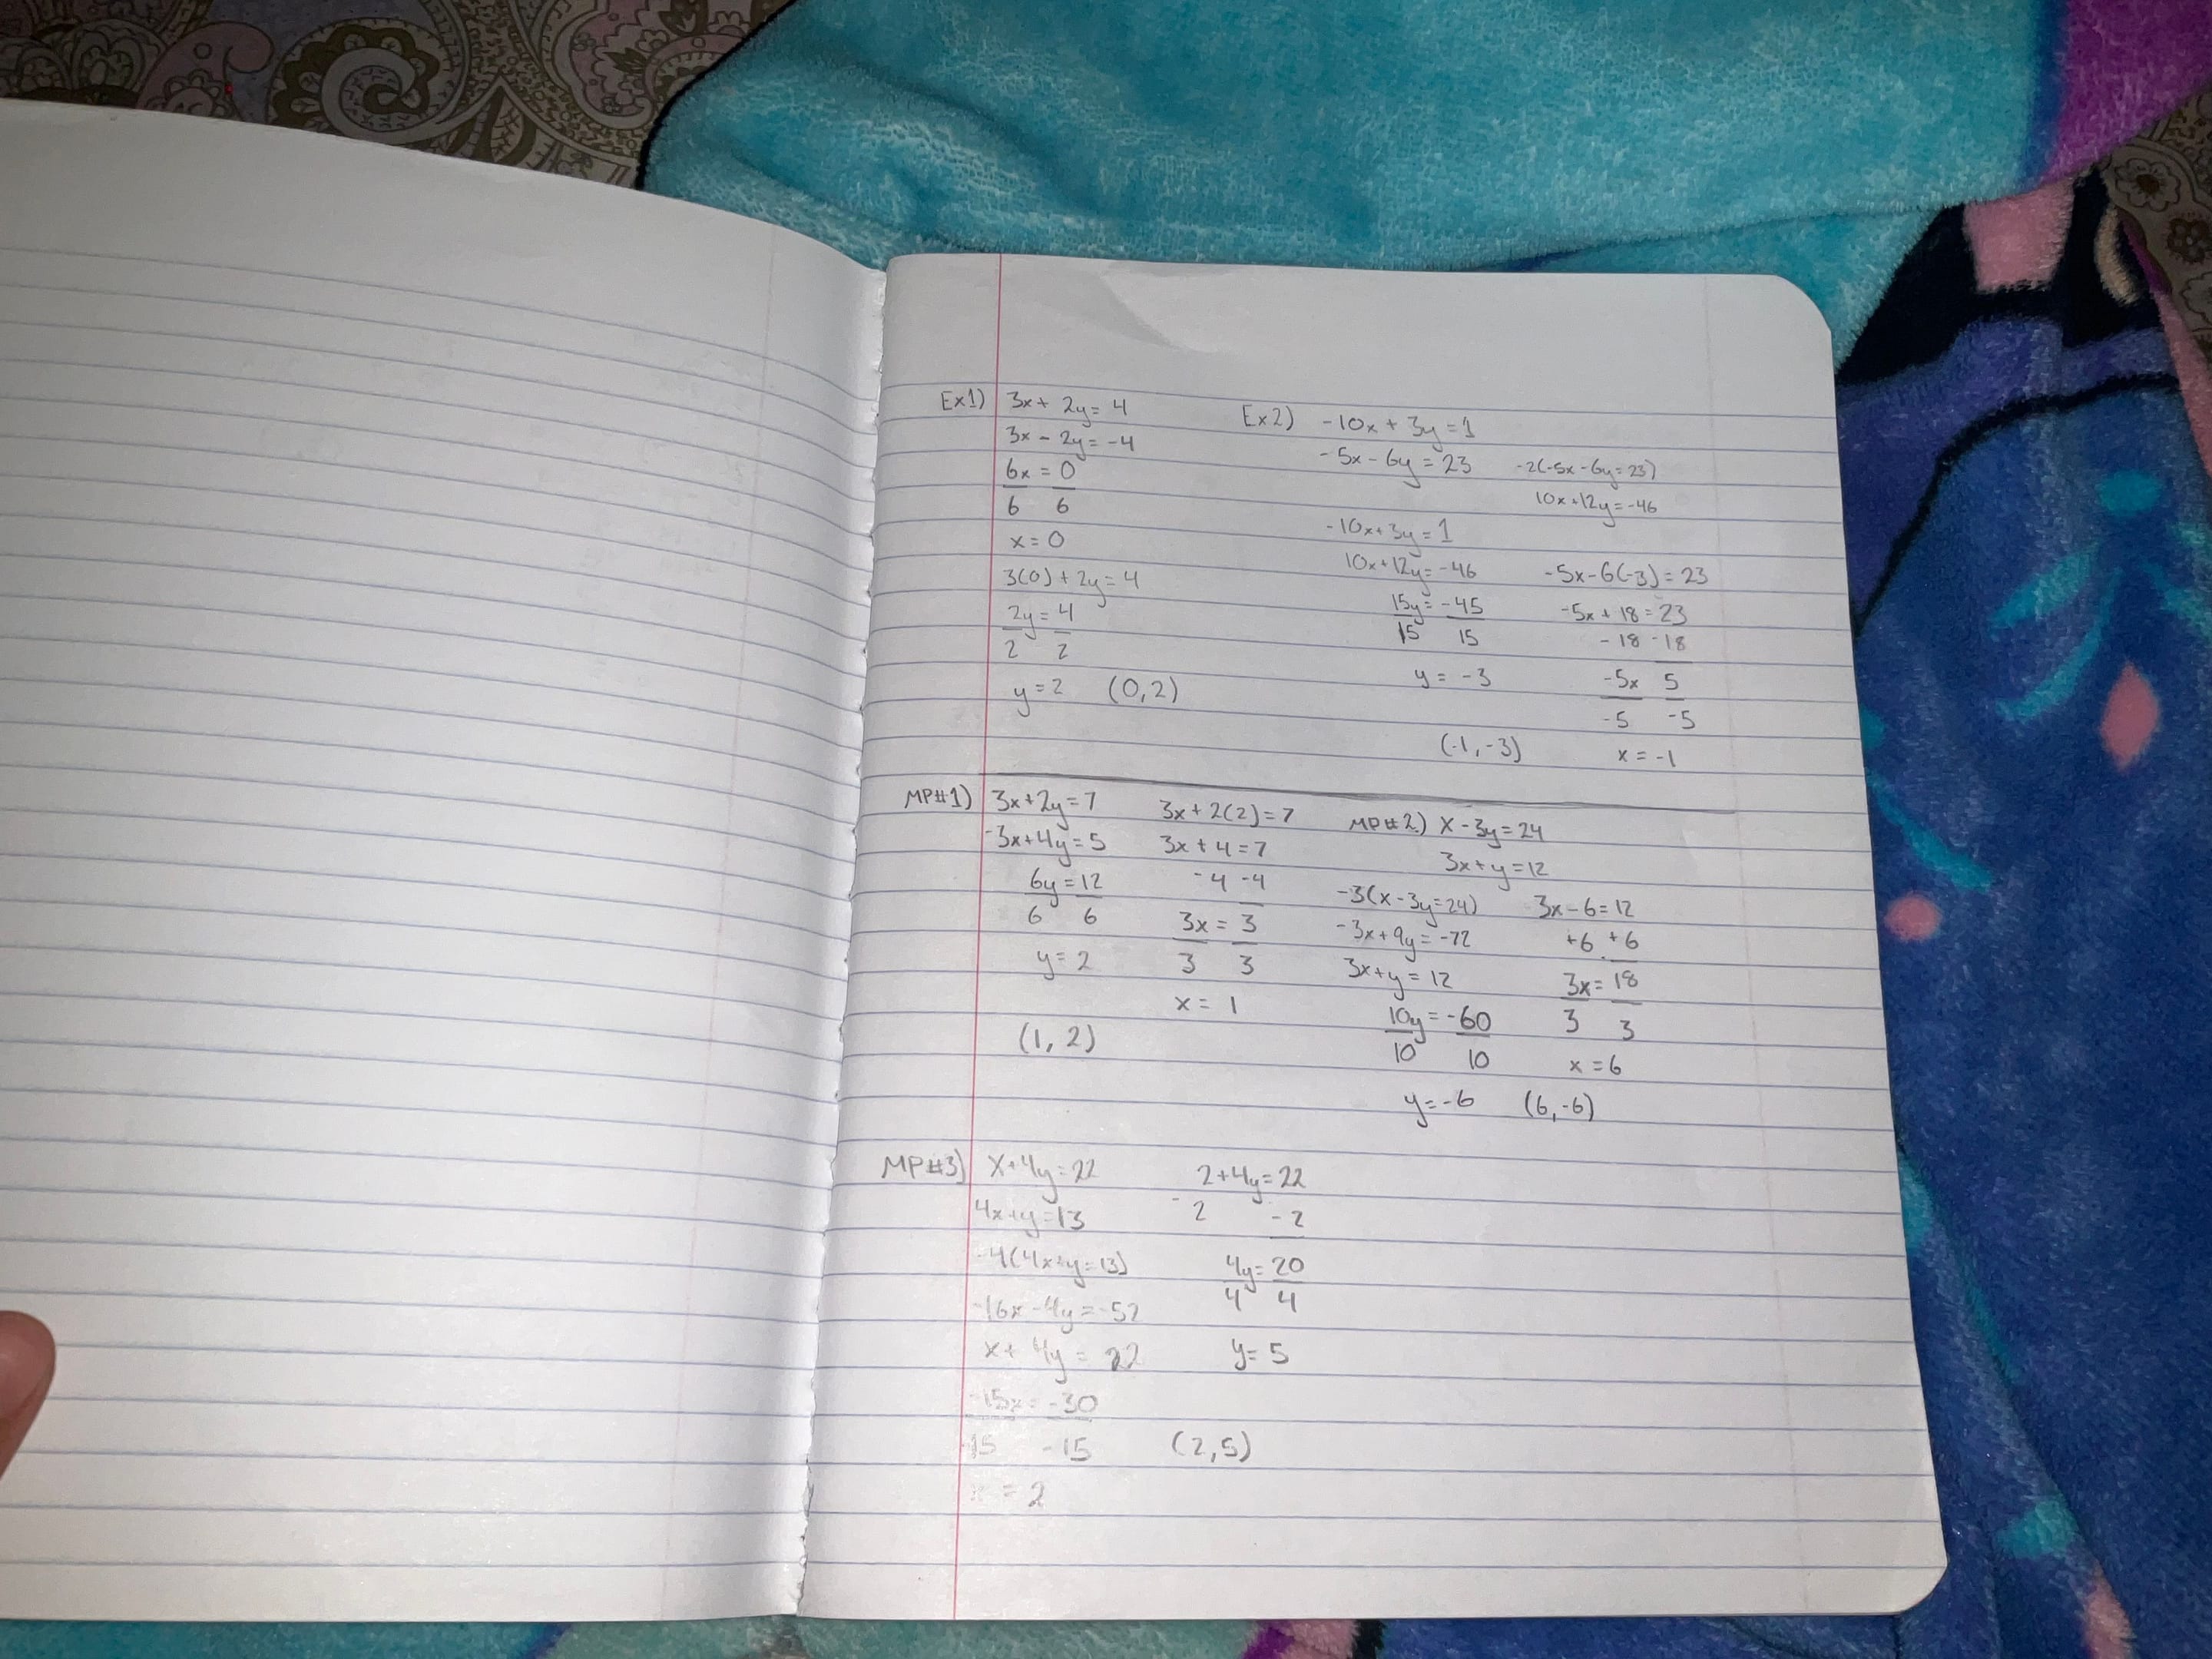 Ex1)
3x + 2y = 4
3x - 2y = -4
6x = 0
6 6
x = 0
3(0) + 2y = 4
2y = 4
2 2
y = 2 (0,2)
Ex2) -10x + 3y = 1
-5x - 6y = 23 -2(-5x - 6y = 23)
10x + 12y = -46
-10x + 3y = 1
10x + 12y = -46
15y = -45
15 15
y = -3
-5x - 6(-3) = 23
-5x + 18 = 23
-18 -18
-5x 5
-5 -5
x = -1
(-1, -3)
MP#1) 3x + 2y = 7
-3x + 4y = 5
6y = 12
6 6
y = 2
3x + 2(2) = 7
3x + 4 = 7
-4 -4
3x = 3
3 3
x = 1
(1, 2)
MP#2) x - 3y = 24
3x + y = 12
-3(x - 3y = 24)
-3x + 9y = -72
3x + y = 12
10y = -60
10 10
y = -6
3x - 6 = 12
+6 +6
3x = 18
3 3
x = 6
(6, -6)
MP#3) x + 4y = 22
4x + y = 13
-4(4x + y = 13)
-16x - 4y = -52
x + 4y = 22
-15x = -30
-15 -15
x = 2
2 + 4y = 22
-2 -2
4y = 20
4 4
y = 5
(2,5)